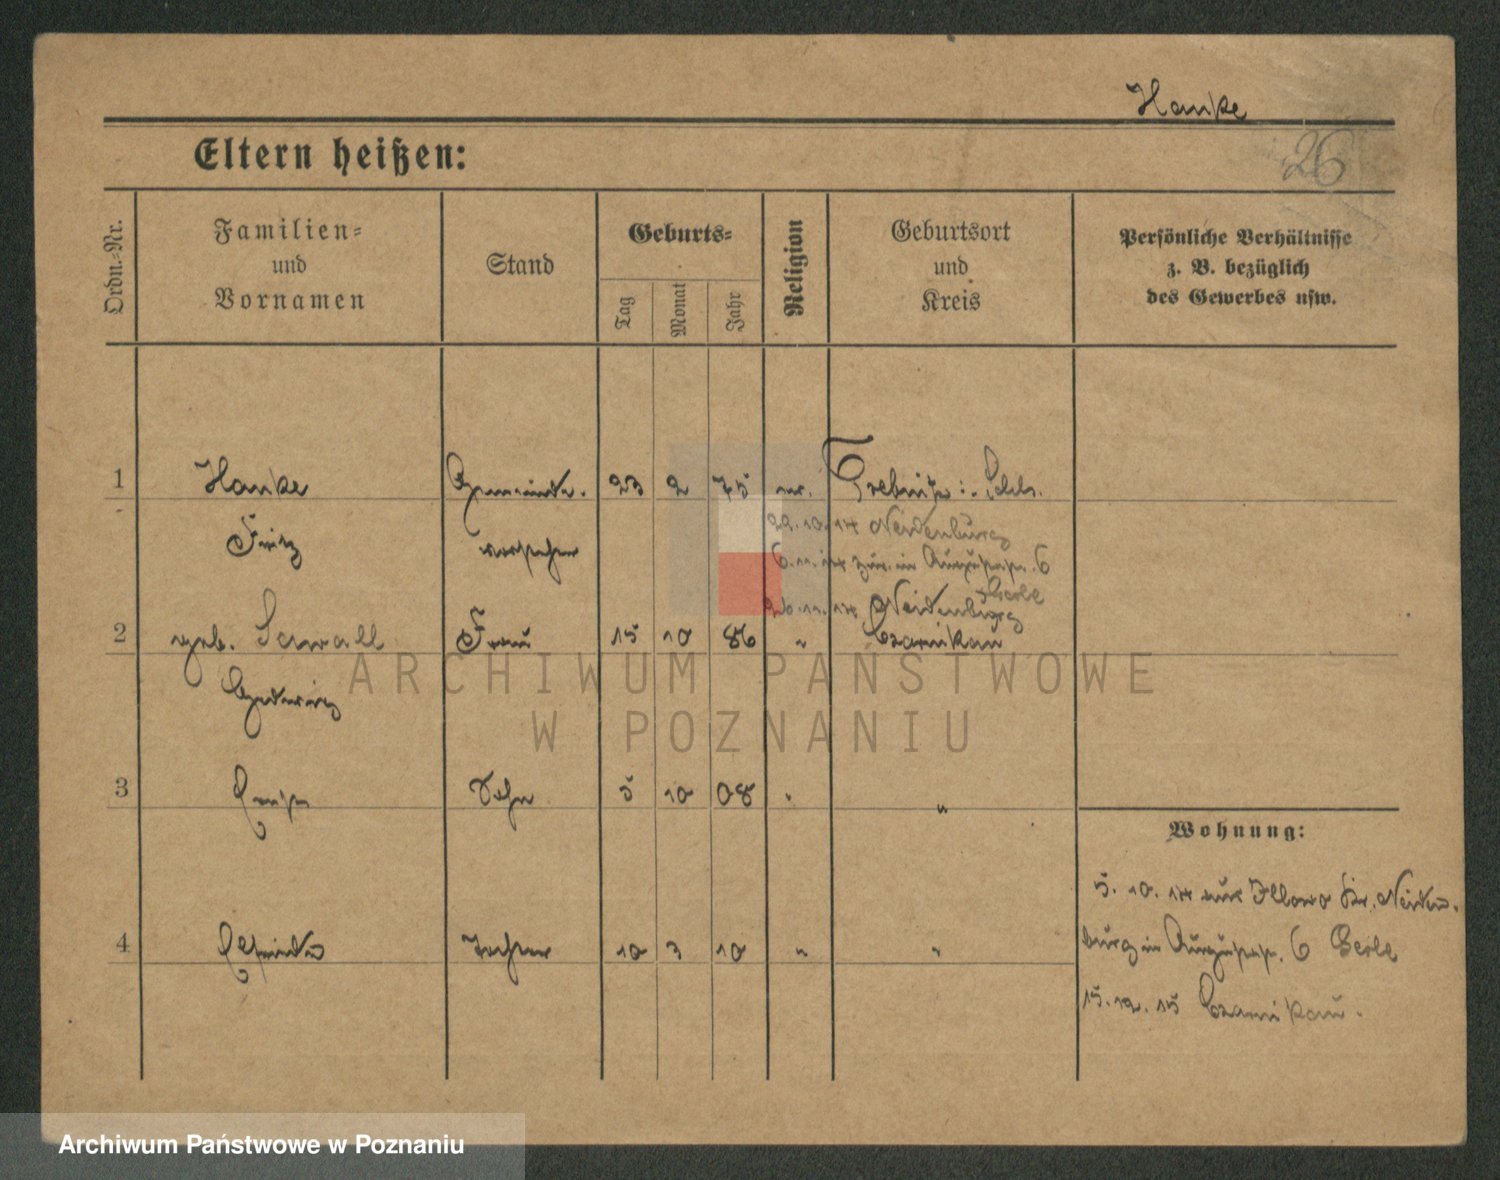 Hanke
26
Eltern heißen:
Ordn.-Nr.
Familien-
und
Vornamen
Stand
Geburts-
Tag
Monat
Jahr
Religion
Geburtsort
und
Kreis
Persönliche Verhältnisse
z. B. bezüglich
des Gewerbes usw.
1 Hanke Gemeinde- 23 2 75 Trebnitz i. Schls.
Fritz vorsteher
22.10.14 Neidenburg
6.11.14 zur. in 6
26.11.14 Neidenburg
2 geb. 15 10 86 " Czarnikau
Frau
Hedwig
3 Sohn 5 10 08 " "
4 Elfriede Tochter 10 3 10 " "
Wohnung:
5. 10. 14 aus Illowo Kr. Neiden-
burg in 6
15. 12. 15 Czarnikau.
ARCHIWUM PAŃSTWOWE
W POZNANIU
Archiwum Państwowe w Poznaniu